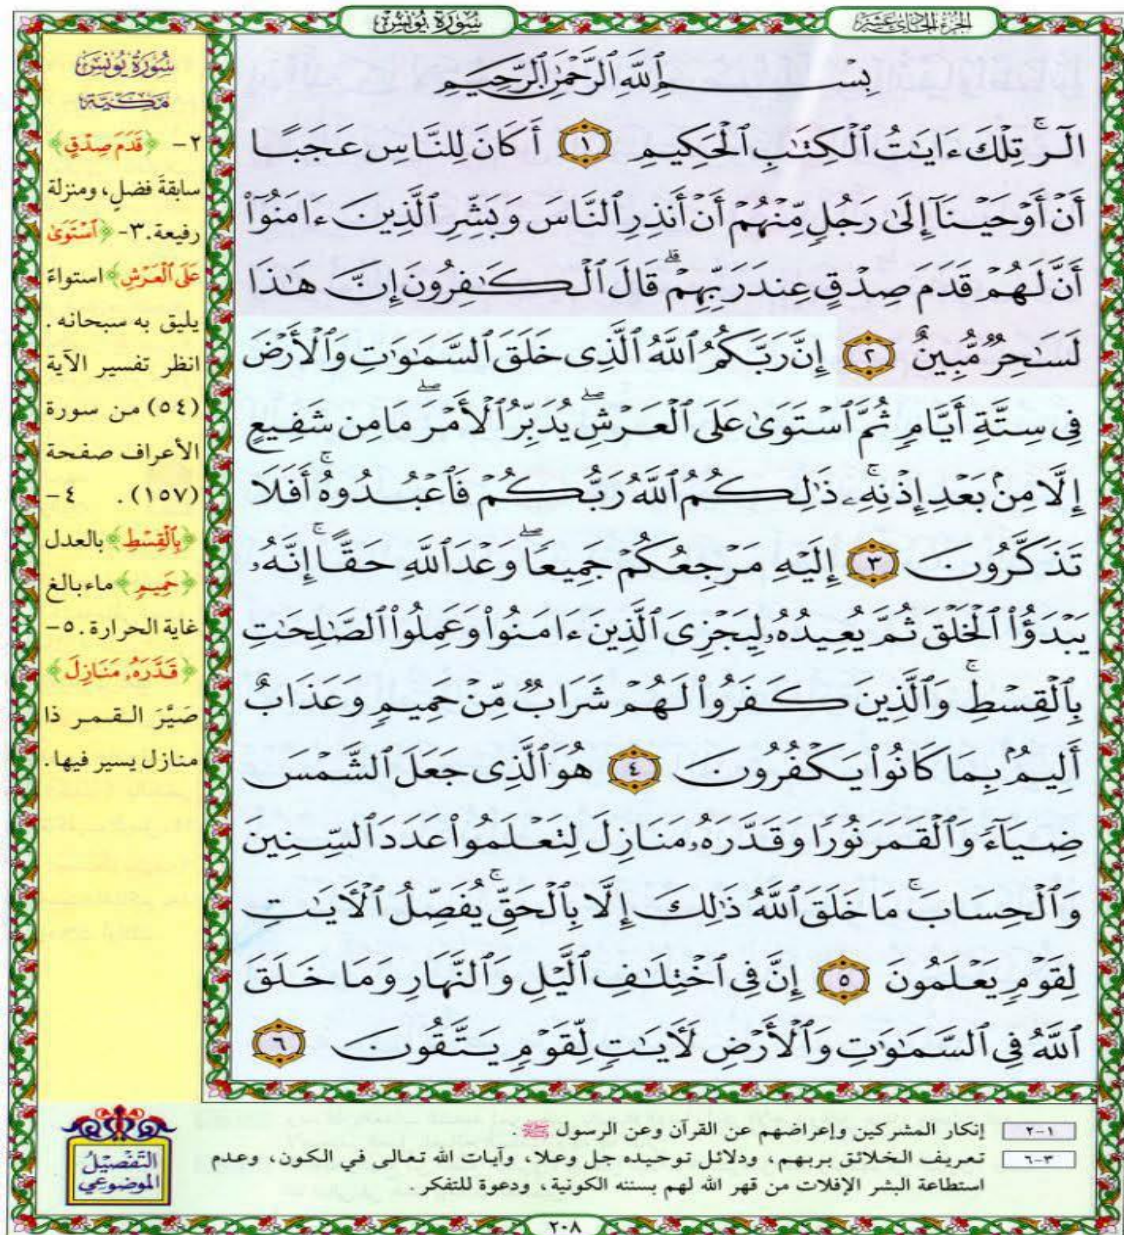 الجزء الحادي عشر
سورة يونس
بِسْمِ ٱللَّهِ ٱلرَّحْمَٰنِ ٱلرَّحِيمِ
الٓر ۚ تِلْكَ ءَايَٰتُ ٱلْكِتَٰبِ ٱلْحَكِيمِ ١ أَكَانَ لِلنَّاسِ عَجَبًا
أَنْ أَوْحَيْنَآ إِلَىٰ رَجُلٍ مِّنْهُمْ أَنْ أَنذِرِ ٱلنَّاسَ وَبَشِّرِ ٱلَّذِينَ ءَامَنُوٓا۟
أَنَّ لَهُمْ قَدَمَ صِدْقٍ عِندَ رَبِّهِمْ ۗ قَالَ ٱلْكَٰفِرُونَ إِنَّ هَٰذَا
لَسَٰحِرٌ مُّبِينٌ ٢ إِنَّ رَبَّكُمُ ٱللَّهُ ٱلَّذِى خَلَقَ ٱلسَّمَٰوَٰتِ وَٱلْأَرْضَ
فِى سِتَّةِ أَيَّامٍ ثُمَّ ٱسْتَوَىٰ عَلَى ٱلْعَرْشِ ۖ يُدَبِّرُ ٱلْأَمْرَ ۖ مَا مِن شَفِيعٍ
إِلَّا مِنۢ بَعْدِ إِذْنِهِۦ ۚ ذَٰلِكُمُ ٱللَّهُ رَبُّكُمْ فَٱعْبُدُوهُ ۚ أَفَلَا
تَذَكَّرُونَ ٣ إِلَيْهِ مَرْجِعُكُمْ جَمِيعًا ۖ وَعْدَ ٱللَّهِ حَقًّا ۚ إِنَّهُۥ
يَبْدَؤُا۟ ٱلْخَلْقَ ثُمَّ يُعِيدُهُۥ لِيَجْزِىَ ٱلَّذِينَ ءَامَنُوا۟ وَعَمِلُوا۟ ٱلصَّٰلِحَٰتِ
بِٱلْقِسْطِ ۚ وَٱلَّذِينَ كَفَرُوا۟ لَهُمْ شَرَابٌ مِّنْ حَمِيمٍ وَعَذَابٌ
أَلِيمٌۢ بِمَا كَانُوا۟ يَكْفُرُونَ ٤ هُوَ ٱلَّذِى جَعَلَ ٱلشَّمْسَ
ضِيَآءً وَٱلْقَمَرَ نُورًا وَقَدَّرَهُۥ مَنَازِلَ لِتَعْلَمُوا۟ عَدَدَ ٱلسِّنِينَ
وَٱلْحِسَابَ ۚ مَا خَلَقَ ٱللَّهُ ذَٰلِكَ إِلَّا بِٱلْحَقِّ ۚ يُفَصِّلُ ٱلْءَايَٰتِ
لِقَوْمٍ يَعْلَمُونَ ٥ إِنَّ فِى ٱخْتِلَٰفِ ٱلَّيْلِ وَٱلنَّهَارِ وَمَا خَلَقَ
ٱللَّهُ فِى ٱلسَّمَٰوَٰتِ وَٱلْأَرْضِ لَءَايَٰتٍ لِّقَوْمٍ يَتَّقُونَ ٦
سُورَةُ يُونُسَ
مَكِّيَّة
٢- ﴿قَدَمَ صِدْقٍ﴾
سابقةَ فضلٍ، ومنزلة
رفيعة. ٣- ﴿ٱسْتَوَىٰ
عَلَى ٱلْعَرْشِ﴾ استواءً
يليق به سبحانه.
انظر تفسير الآية
(٥٤) من سورة
الأعراف صفحة
(١٥٧). ٤-
﴿بِٱلْقِسْطِ﴾ بالعدل
﴿حَمِيمٍ﴾ ماء بالغ
غاية الحرارة. ٥-
﴿قَدَّرَهُۥ مَنَازِلَ﴾
صَيَّرَ القمر ذا
منازل يسير فيها.
١-٢ إنكار المشركين وإعراضهم عن القرآن وعن الرسول ﷺ
٣-٦ تعريف الخلائق بربهم، ودلائل توحيده جل وعلا، وآيات الله تعالى في الكون، وعدم
استطاعة البشر الإفلات من قهر الله لهم بسننه الكونية، ودعوة للتفكر.
التَّفْصِيلُ
الموضوعي
٢٠٨